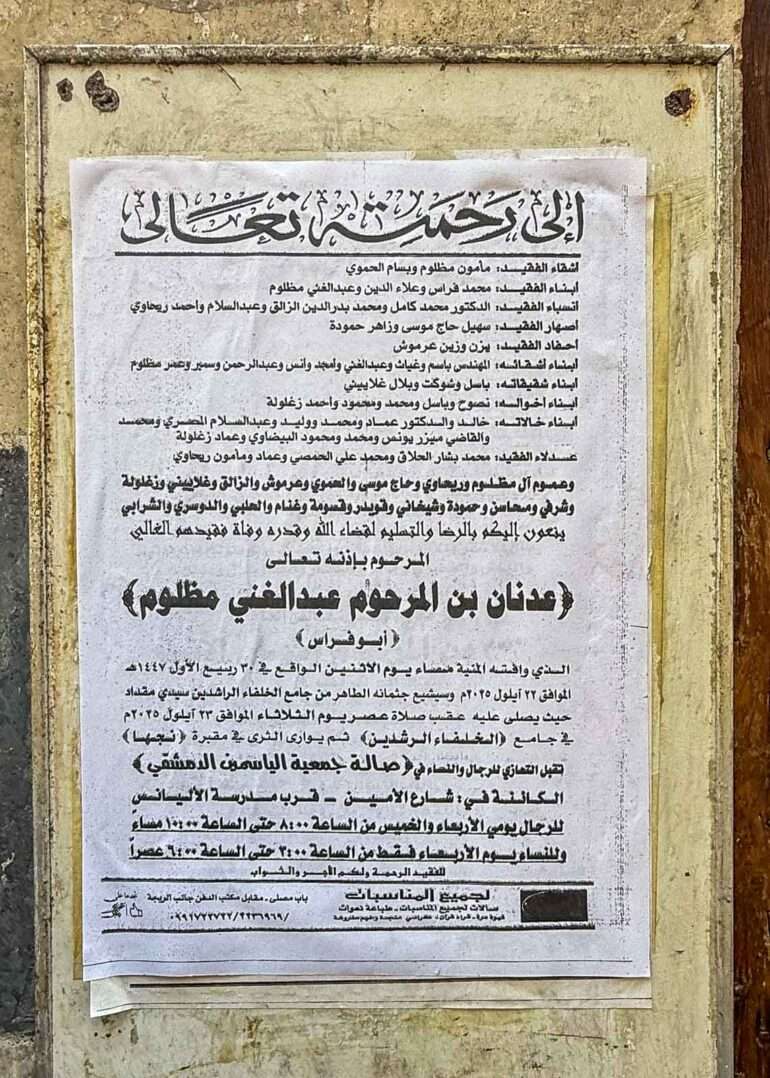 إلى رحمته تعالى
أشقاء الفقيد: مأمون مظلوم وبسام الحموي
أبناء الفقيد: محمد فراس وعلاء الدين وعبدالغني مظلوم
أنسباء الفقيد: الدكتور محمد كامل ومحمد بدرالدين الزالق وعبدالسلام وأحمد ريحاوي
أصهار الفقيد: سهيل حاج موسى وزاهر حمودة
أحفاد الفقيد: يزن وزين عرموش
أبناء أشقائه: المهندس باسم وغياث وعبدالغني وأمجد وأنس وعبدالرحمن وسمير وعمر مظلوم
أبناء شقيقاته: باسل وشوكت وبلال غلاييني
أبناء أخواله: نصوح وباسل ومحمد ومحمود وأحمد زغلولة
أبناء خالاته: خالد والدكتور عماد ومحمد ووليد وعبدالسلام المصري ومحمد
والقاضي ميزر يونس ومحمد ومحمود البيضاوي وعماد زغلولة
عدلاء الفقيد: محمد بشار الحلاق ومحمد علي الحمصي وعماد ومأمون ريحاوي
وعموم آل مظلوم وريحاوي وحاج موسى والحموي وعرموش والزالق وغلاييني وزغلولة
وشرفي ومحاسن وحمودة وشيخاني وقويدر وقسومة وغنام والحلبي والدوسري والشرابي
ينعون إليكم بالرضا والتسليم لقضاء الله وقدره وفاة فقيدهم الغالي
المرحوم بإذنه تعالى
﴿عدنان بن المرحوم عبدالغني مظلوم﴾
(أبو فراس)
الذي وافته المنية مساء يوم الاثنين الواقع في ٣٠ ربيع الأول ١٤٤٧هـ
الموافق ٢٢ أيلول ٢٠٢٥م وسيشيع جثمانه الطاهر من جامع الخلفاء الراشدين سيدي مقداد
حيث يصلى عليه عقب صلاة عصر يوم الثلاثاء الموافق ٢٣ أيلول ٢٠٢٥م
في جامع (الخلفاء الرشدين) ثم يوارى الثرى في مقبرة (نجها)
تقبل التعازي للرجال والنساء في (صالة جمعية الياسمين الدمشقي)
الكائنة في: شارع الأمين - قرب مدرسة الأليانس
للرجال يومي الأربعاء والخميس من الساعة ٨:٠٠ حتى الساعة ١٠:٠٠ مساءً
وللنساء يوم الأربعاء فقط من الساعة ٣:٠٠ حتى الساعة ٦:٠٠ عصراً
للفقيد الرحمة ولكم الأجر والثواب
لجميع المناسبات
صالات لجميع المناسبات - طباعة نعوات
باب مصلى - مقابل مكتب الدفن جانب الريجة